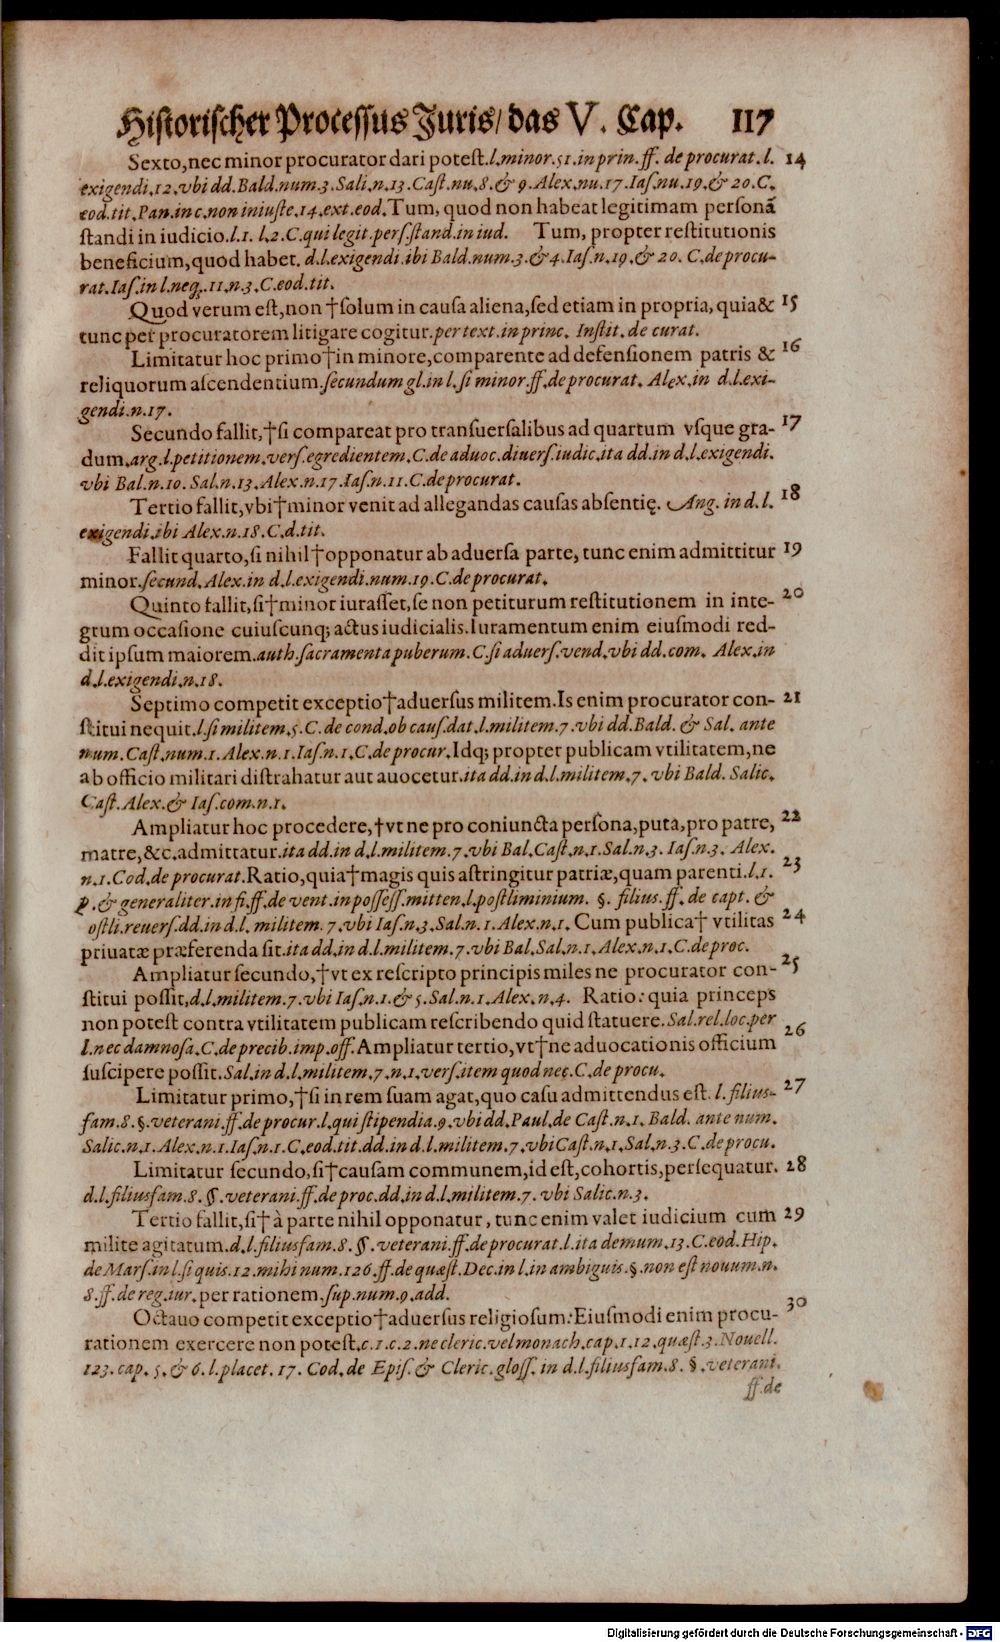 Historischer Processus Juris/ das V. Cap. 117
Sexto, nec minor procurator dari potest. l. minor. 51. in prin. ff. de procurat. l. 14
exigendi. 12. vbi dd. Bald. num. 3. Sali. n. 13. Cast. nu. 8. & 9. Alex. nu. 17. Ias. nu. 19. & 20. C.
eod. tit. Pan. in c. non iniuste. 14. ext. eod. Tum, quod non habeat legitimam personã
standi in iudicio. l. 1. l. 2. C. qui legit. pers. stand. in iud. Tum, propter restitutionis
beneficium, quod habet. d. l. exigendi. ibi Bald. num. 3. & 4. Ias. n. 19. & 20. C. de procu-
rat. Ias. in l. neq;. 11. n. 3. C. eod. tit.
Quod verum est, non † solum in causa aliena, sed etiam in propria, quia & 15
tunc per procuratorem litigare cogitur. per text. in princ. Instit. de curat.
Limitatur hoc primo † in minore, comparente ad defensionem patris & 16
reliquorum ascendentium. secundum gl. in l. si minor. ff. de procurat. Alex. in d. l. exi-
gendi. n. 17.
Secundo fallit, † si compareat pro transuersalibus ad quartum vsque gra- 17
dum. arg. l. petitionem. vers. egredientem. C. de aduoc. diuers. iudic. ita dd. in d. l. exigendi.
vbi Bal. n. 10. Sal. n. 13. Alex. n. 17. Ias. n. 11. C. de procurat.
Tertio fallit, vbi † minor venit ad allegandas causas absentię. Ang. in d. l. 18
exigendi. ibi Alex. n. 18. C. d. tit.
Fallit quarto, si nihil † opponatur ab aduersa parte, tunc enim admittitur 19
minor. secund. Alex. in d. l. exigendi. num. 19. C. de procurat.
Quinto fallit, si † minor iurasset, se non petiturum restitutionem in inte- 20
grum occasione cuiuscunq; actus iudicialis. Iuramentum enim eiusmodi red-
dit ipsum maiorem. auth. sacramenta puberum. C. si aduers. vend. vbi dd. com. Alex. in
d. l. exigendi. n. 18.
Septimo competit exceptio † aduersus militem. Is enim procurator con- 21
stitui nequit. l. si militem. 5. C. de cond. ob caus. dat. l. militem. 7. vbi dd. Bald. & Sal. ante
num. Cast. num. 1. Alex. n. 1. Ias. n. 1. C. de procur. Idq; propter publicam vtilitatem, ne
ab officio militari distrahatur aut auocetur. ita dd. in d. l. militem. 7. vbi Bald. Salic.
Cast. Alex. & Ias. com. n. 1.
Ampliatur hoc procedere, † vt ne pro coniuncta persona, puta, pro patre, 22
matre, &c. admittatur. ita dd. in d. l. militem. 7. vbi Bal. Cast. n. 1. Sal. n. 3. Ias. n. 3. Alex.
n. 1. Cod. de procurat. Ratio, quia † magis quis astringitur patriæ, quam parenti. l. 1. 23
p. & generaliter. in fi. ff. de vent. in possess. mitten. l. postliminium. §. filius. ff. de capt. &
ostli. reuers. dd. in d. l. militem. 7. vbi Ias. n. 3. Sal. n. 1. Alex. n. 1. Cum publica † vtilitas 24
priuatæ præferenda sit. ita dd. in d. l. militem. 7. vbi Bal. Sal. n. 1. Alex. n. 1. C. de proc.
Ampliatur secundo, † vt ex rescripto principis miles ne procurator con- 25
stitui possit, d. l. militem. 7. vbi Ias. n. 1. & 5. Sal. n. 1. Alex. n. 4. Ratio: quia princeps
non potest contra vtilitatem publicam rescribendo quid statuere. Sal. rel. loc. per
l. nec damnosa. C. de precib. imp. off. Ampliatur tertio, vt † ne aduocationis officium 26
suscipere possit. Sal. in d. l. militem. 7. n. 1. vers. item quod nec. C. de procu.
Limitatur primo, † si in rem suam agat, quo casu admittendus est. l. filius- 27
fam. 8. §. veterani. ff. de procur. l. qui stipendia. 9. vbi dd. Paul. de Cast. n. 1. Bald. ante num.
Salic. n. 1. Alex. n. 1. Ias. n. 1. C. eod. tit. dd. in d. l. militem. 7. vbi Cast. n. 1. Sal. n. 3. C. de procu.
Limitatur secundo, si † causam communem, id est, cohortis, persequatur. 28
d. l. filiusfam. 8. §. veterani. ff. de proc. dd. in d. l. militem. 7. vbi Salic. n. 3.
Tertio fallit, si † à parte nihil opponatur, tunc enim valet iudicium cum 29
milite agitatum. d. l. filiusfam. 8. §. veterani. ff. de procurat. l. ita demum. 13. C. eod. Hip.
de Mars. in l. si quis. 12. mihi num. 126. ff. de quæst. Dec. in l. in ambiguis. §. non est nouum. n.
8. ff. de reg. iur. per rationem. sup. num. 9. add.
Octauo competit exceptio † aduersus religiosum: Eiusmodi enim procu- 30
rationem exercere non potest. c. 1. c. 2. ne cleric. vel monach. cap. 1. 12. quæst. 3. Nouell.
123. cap. 5. & 6. l. placet. 17. Cod. de Epis. & Cleric. gloss. in d. l. filiusfam. 8. §. veterani.
ff. de
Digitalisierung gefördert durch die Deutsche Forschungsgemeinschaft - DFG